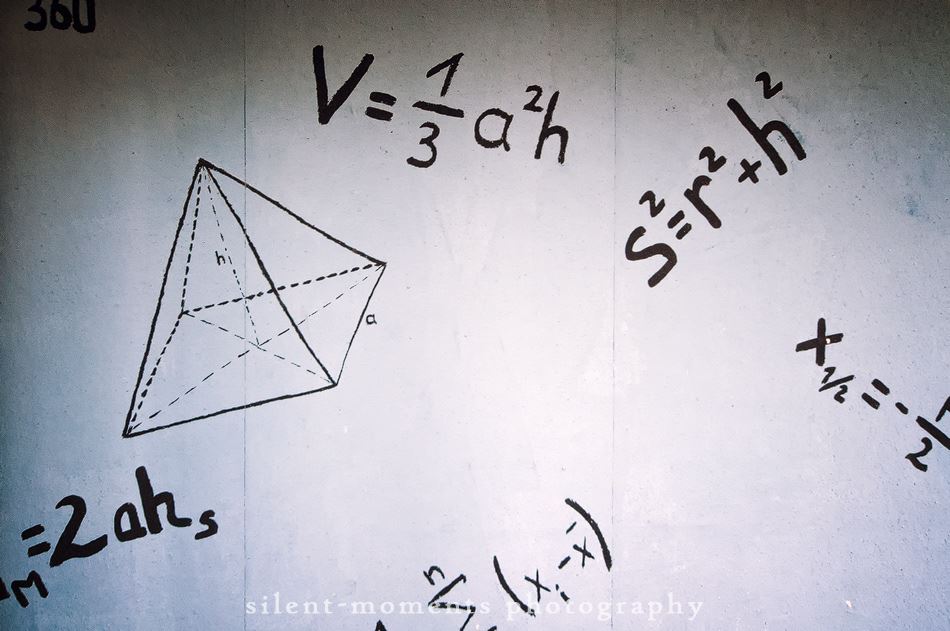 360
V = 1/3 a²h
s² = r² + h²
h
a
x₁/₂ = -
2
M = 2ahₛ
n
Σ (xᵢ - x̄)
silent-moments photography